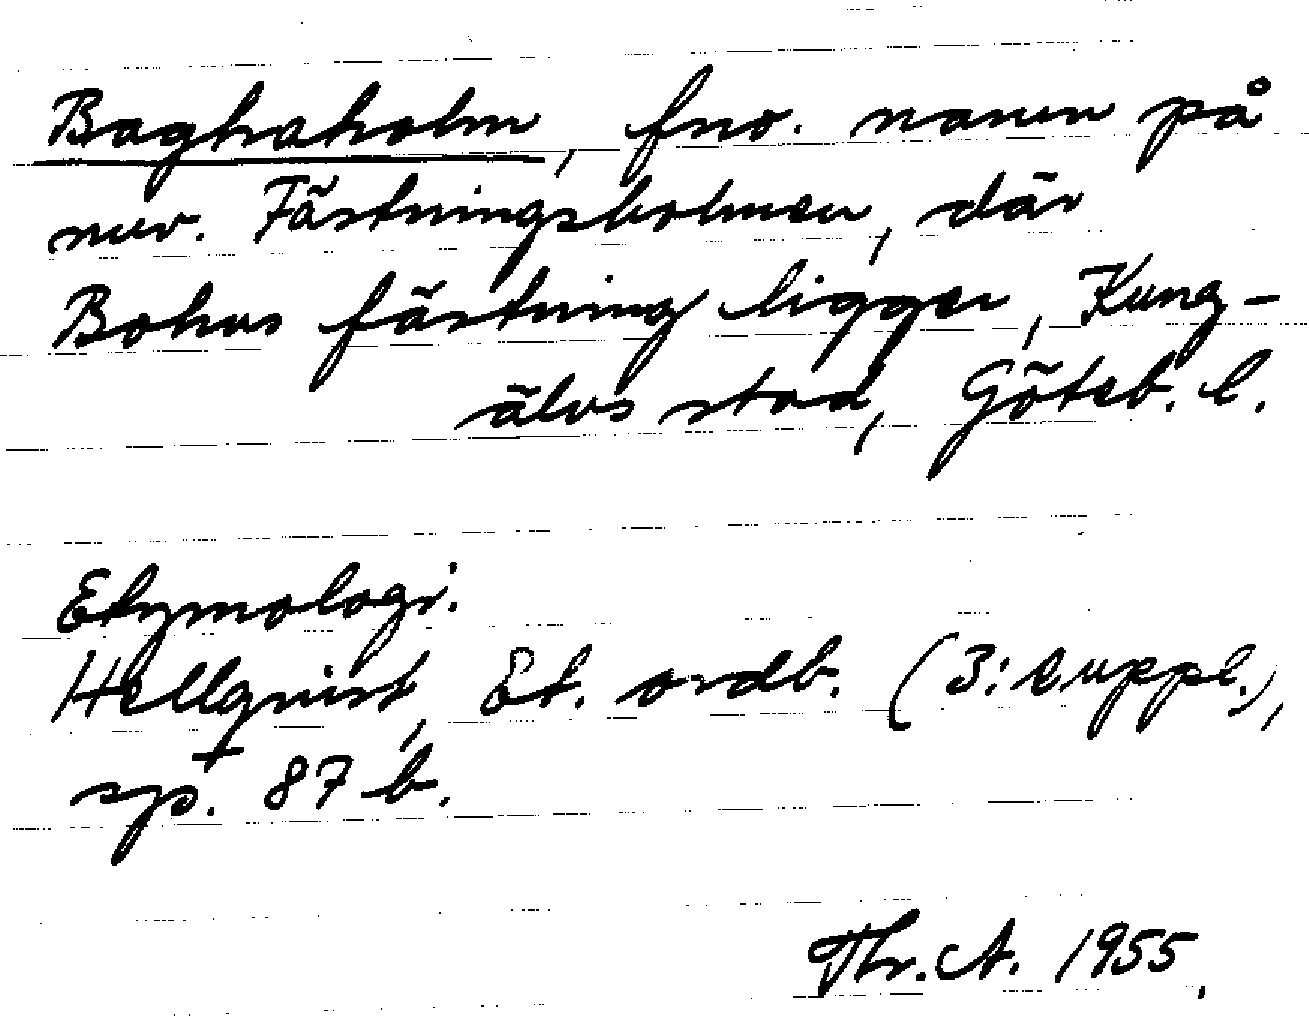 Baghaholm, fno. namn på
nuv. Fästningsholmen, där
Bohus fästning ligger, Kung-
älvs stad, Göteb. l.
Etymologi.
Hellquist, Et. ordb. (3: suppl.),
sp. 87 b.
Thr. A. 1955.